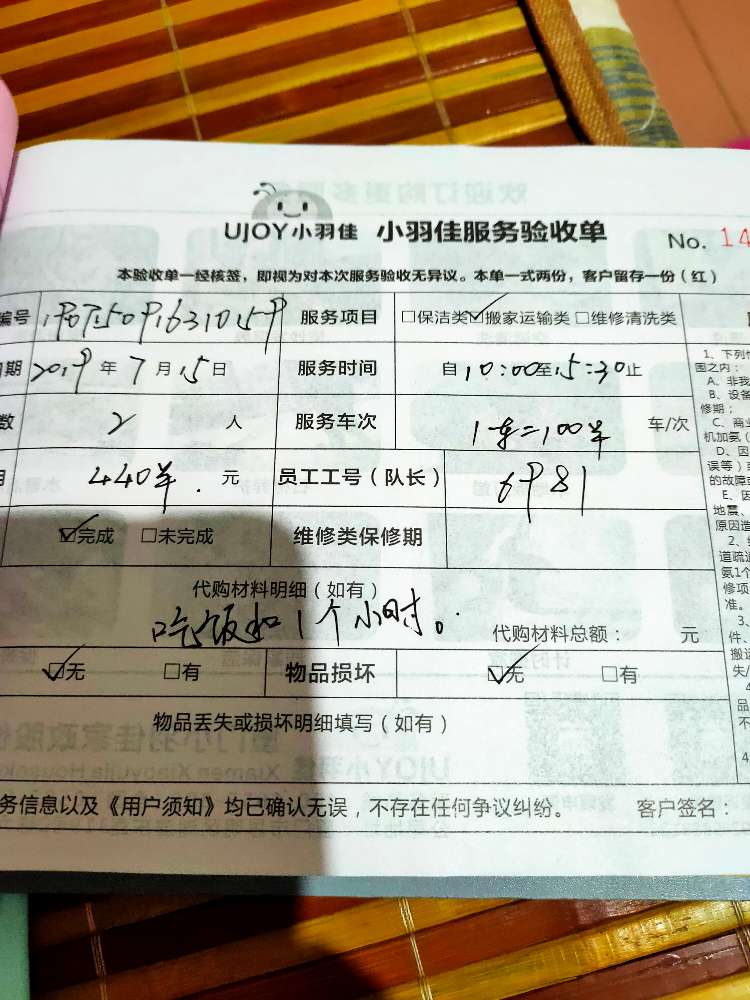 UJOY小羽佳 小羽佳服务验收单 No. 14
本验收单一经核签，即视为对本次服务验收无异议。本单一式两份，客户留存一份（红）
编号 服务项目 □保洁类☑搬家运输类□维修清洗类
期 2019年7月15日 服务时间 自10:00至15:30止
数 2 人 服务车次 1车=100半 车/次
440半. 元 员工工号（队长） 6981
☑完成 □未完成 维修类保修期
代购材料明细（如有）
吃饭扣1个小时。 代购材料总额： 元
☑无 □有 物品损坏 ☑无 □有
物品丢失或损坏明细填写（如有）
务信息以及《用户须知》均已确认无误，不存在任何争议纠纷。 客户签名：
1、下列
围之内：
A、非我
B、设备
修期；
C、商业
机加氨（
D、因
误等）
的故障
E、因
地震、
原因造
道疏
氨1个
修项
准。
3、
件、
搬运
失/
品
不